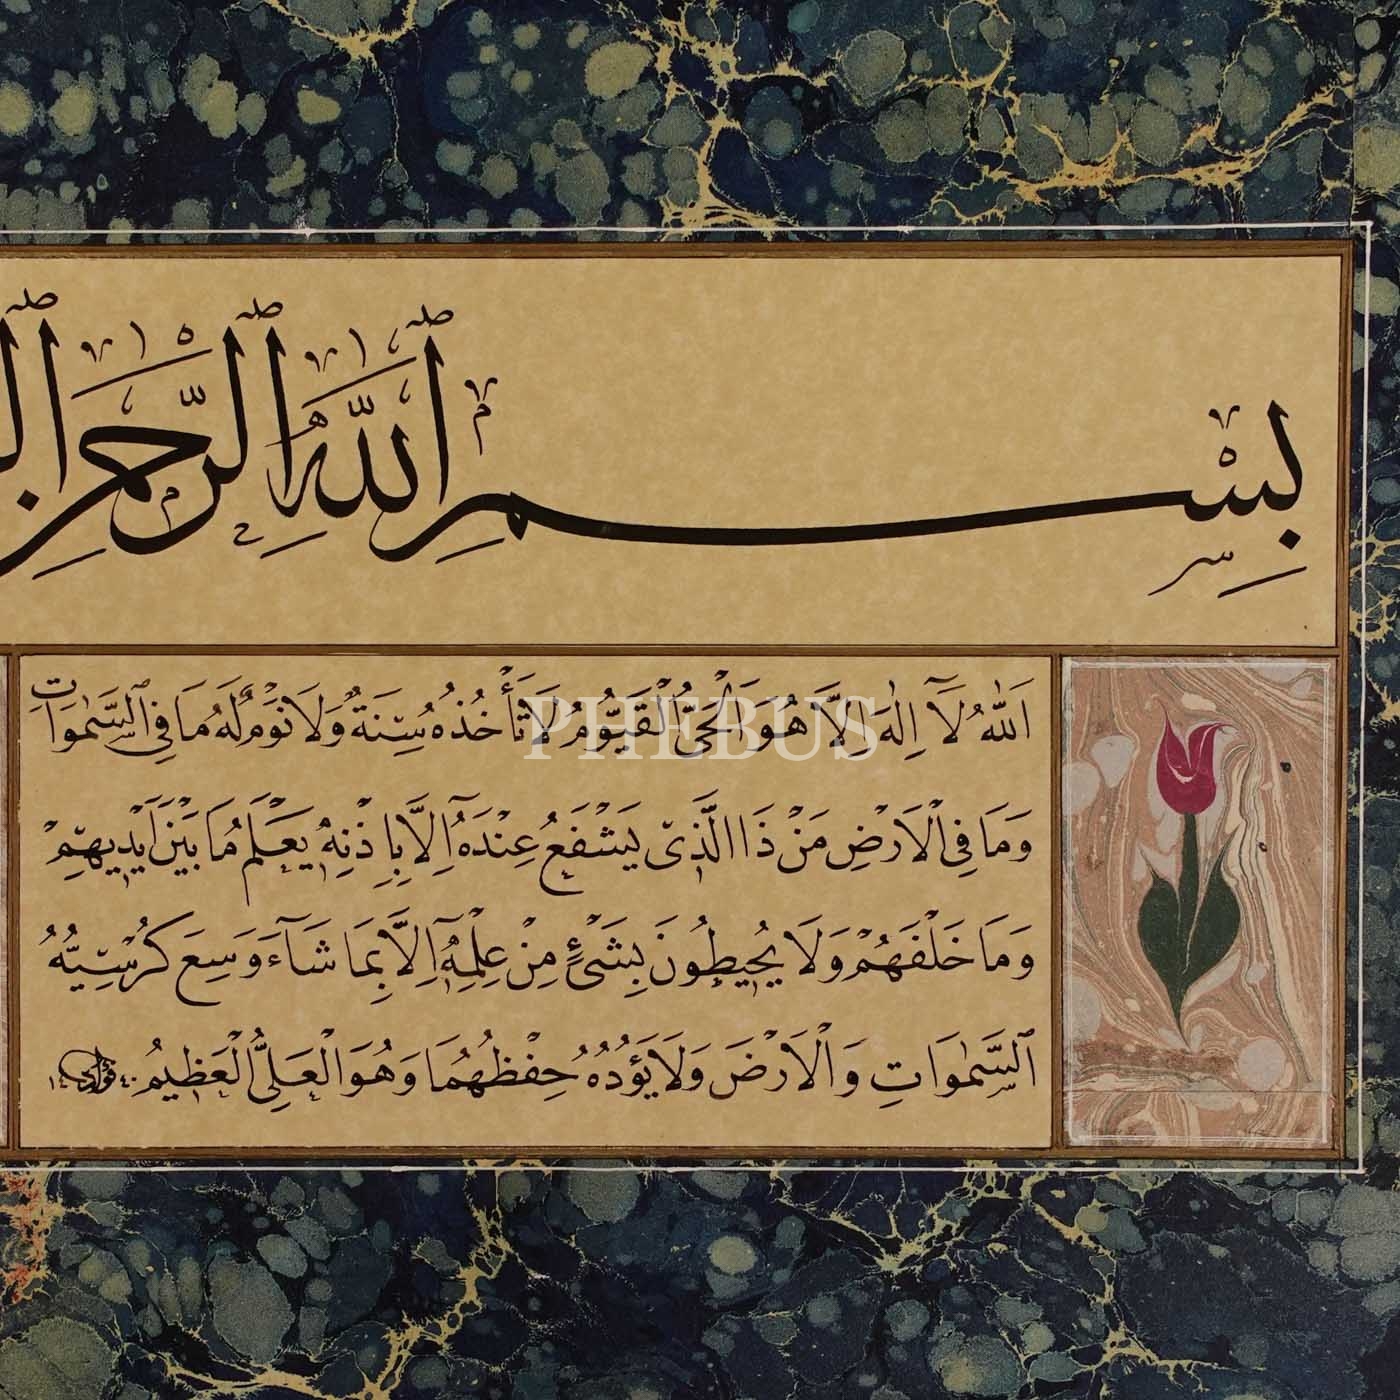 بِسْمِ ٱللَّهِ ٱلرَّحْمٰنِ
اَللّٰهُ لَآ اِلٰهَ اِلَّا هُوَ اَلْحَىُّ الْقَيُّومُ لَا تَأْخُذُهُ سِنَةٌ وَلَا نَوْمٌ لَهُ مَا فِى السَّمٰوَاتِ
وَمَا فِى الْاَرْضِ مَنْ ذَا الَّذِى يَشْفَعُ عِنْدَهُ اِلَّا بِاِذْنِهِ يَعْلَمُ مَا بَيْنَ اَيْدِيهِمْ
وَمَا خَلْفَهُمْ وَلَا يُحِيطُونَ بِشَىْءٍ مِنْ عِلْمِهِ اِلَّا بِمَا شَآءَ وَسِعَ كُرْسِيُّهُ
السَّمٰوَاتِ وَالْاَرْضَ وَلَا يَؤُدُهُ حِفْظُهُمَا وَهُوَ الْعَلِىُّ الْعَظِيمُ
PHEBUS